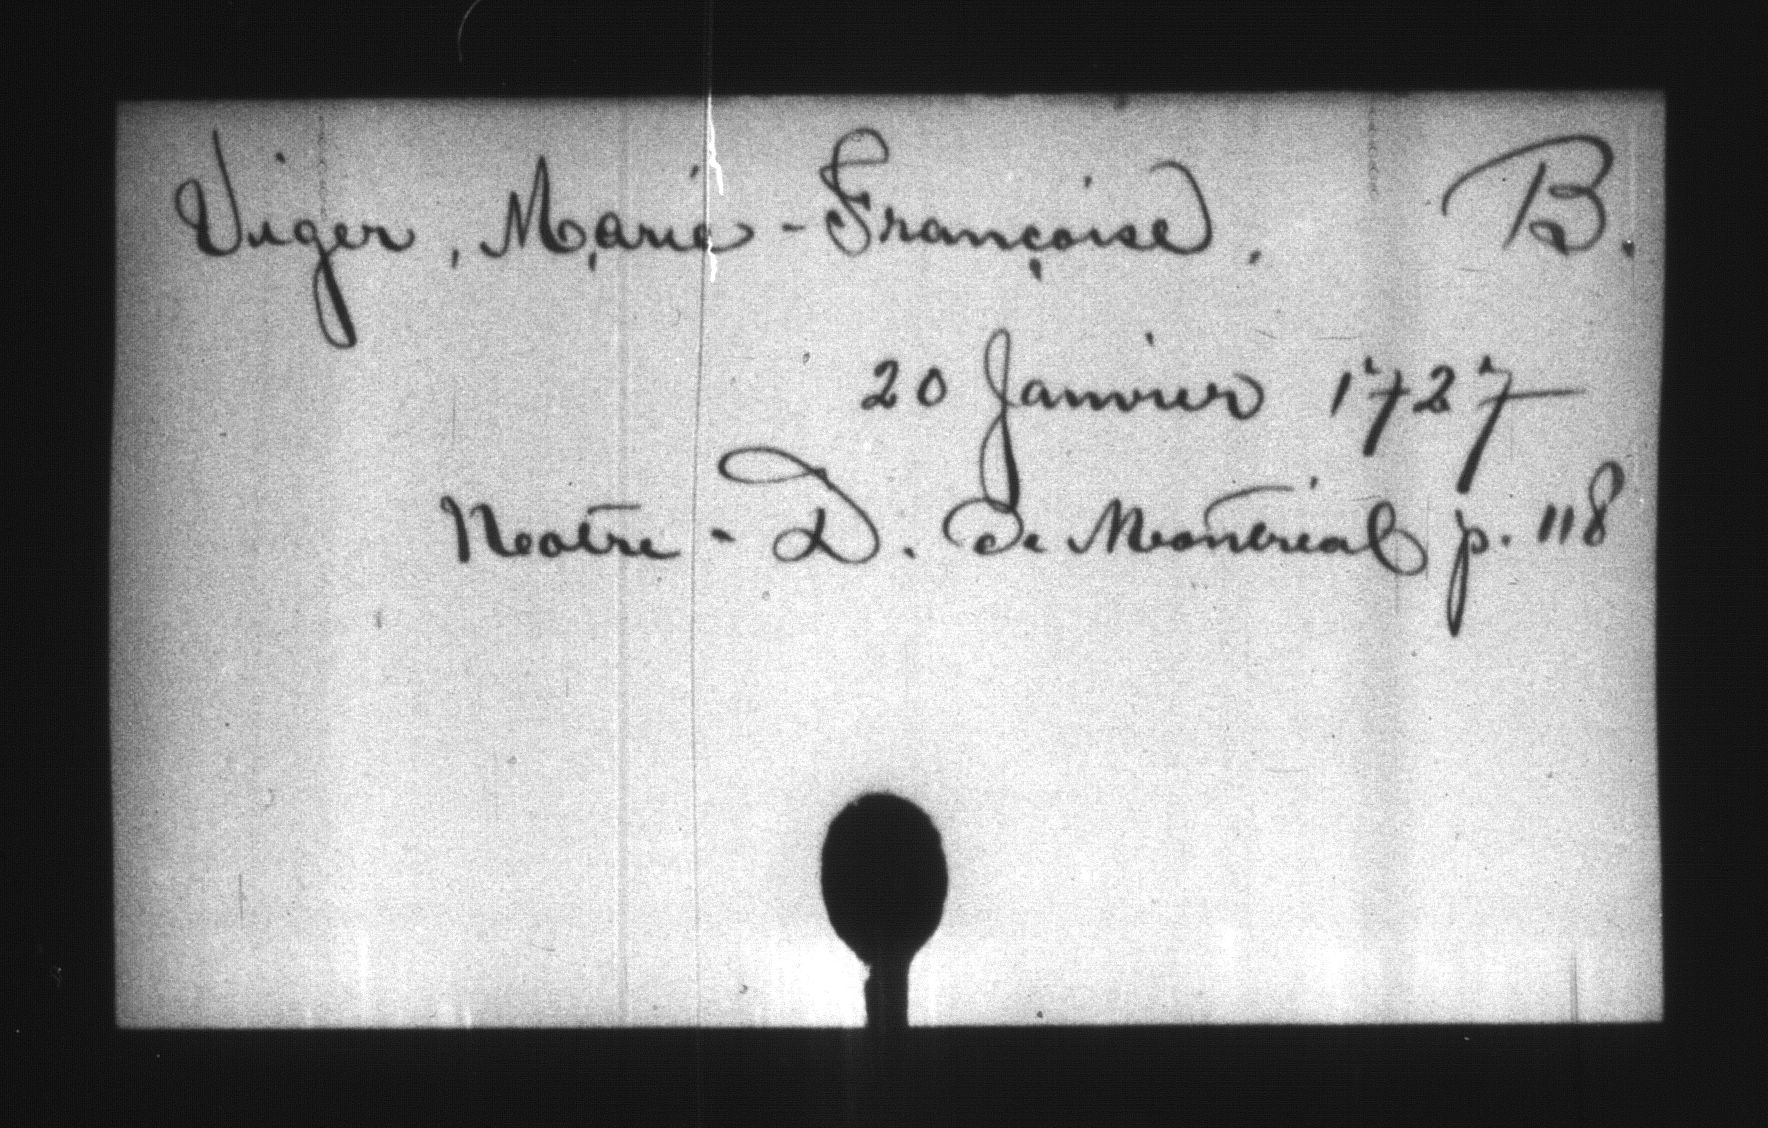 Viger, Marie-Françoise. B.
20 Janvier 1727
Notre-D. de Montréal p. 118